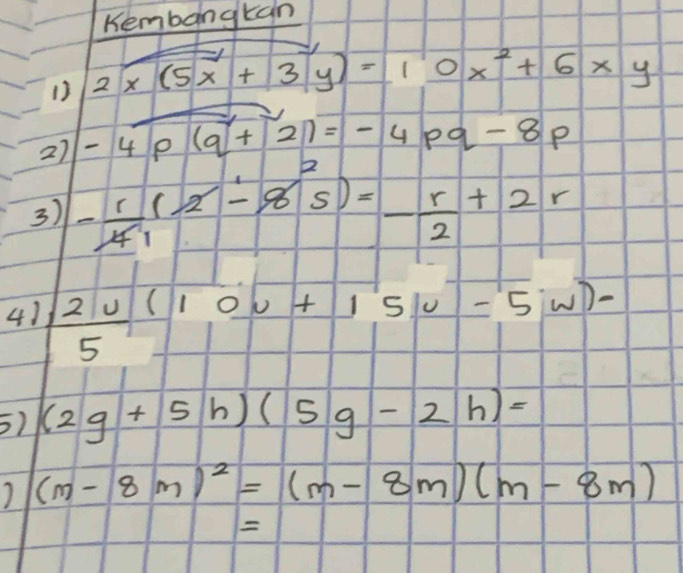 Kembangkan
1) 2x (5x + 3y) = 10x² + 6xy
2) -4p (q + 2) = -4pq - 8p
3) -r/4 1 (2 1 - 8 2 s) = -r/2 + 2r
4) 2u/5 (10u + 15u - 5w) -
5) (2g + 5h) (5g - 2h) =
) (m - 8m)² = (m - 8m)(m - 8m)
=